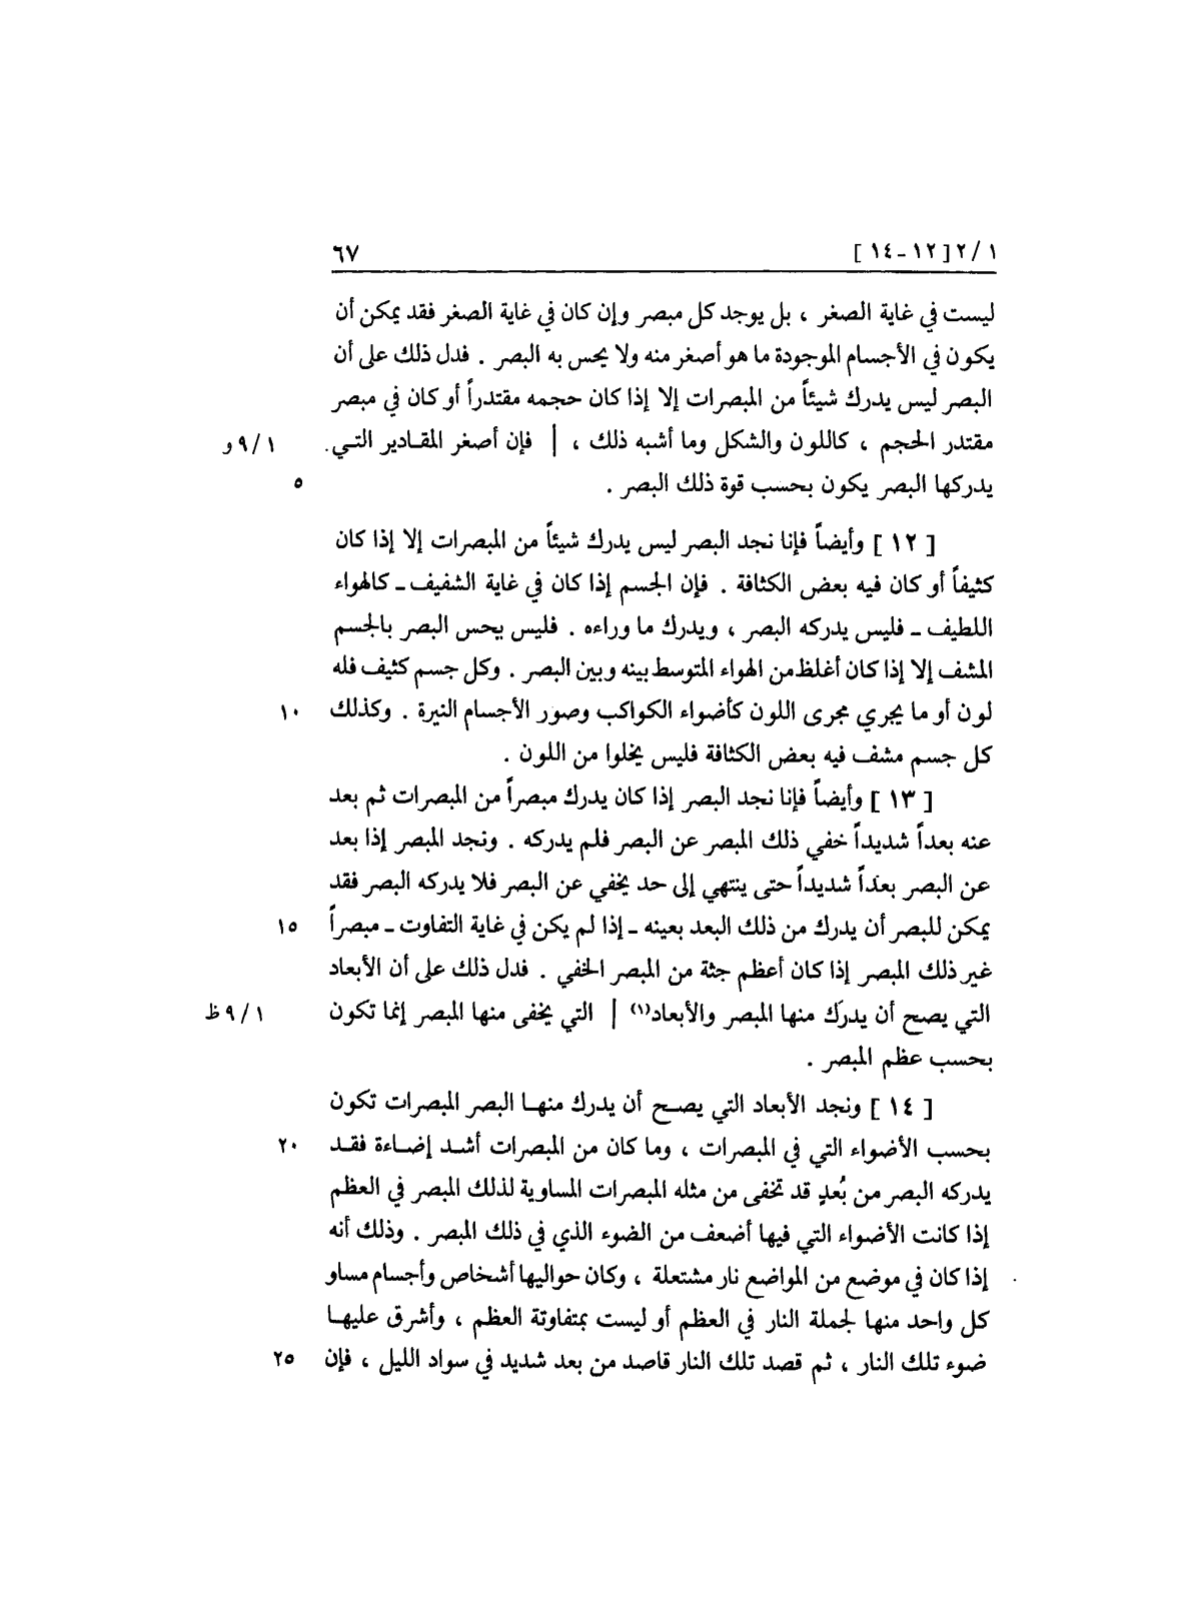 ١ / ٢ [ ١٢ - ١٤ ] ٦٧
ليست في غاية الصغر ، بل يوجد كل مبصر وإن كان في غاية الصغر فقد يمكن أن
يكون في الأجسام الموجودة ما هو أصغر منه ولا يحس به البصر . فدل ذلك على أن
البصر ليس يدرك شيئاً من المبصرات إلا إذا كان حجمه مقتدراً أو كان في مبصر
مقتدر الحجم ، كاللون والشكل وما أشبه ذلك ، | فإن أصغر المقـادير التـي ١ / ٩ و
يدركها البصر يكون بحسب قوة ذلك البصر . ٥
[ ١٢ ] وأيضاً فإنا نجد البصر ليس يدرك شيئاً من المبصرات إلا إذا كان
كثيفاً أو كان فيه بعض الكثافة . فإن الجسم إذا كان في غاية الشفيف ـ كالهواء
اللطيف ـ فليس يدركه البصر ، ويدرك ما وراءه . فليس يحس البصر بالجسم
المشف إلا إذا كان أغلظ من الهواء المتوسط بينه وبين البصر . وكل جسم كثيف فله
لون أو ما يجري مجرى اللون كأضواء الكواكب وصور الأجسام النيرة . وكذلك ١٠
كل جسم مشف فيه بعض الكثافة فليس يخلوا من اللون .
[ ١٣ ] وأيضاً فإنا نجد البصر إذا كان يدرك مبصراً من المبصرات ثم بعد
عنه بعداً شديداً خفي ذلك المبصر عن البصر فلم يدركه . ونجد المبصر إذا بعد
عن البصر بعداً شديداً حتى ينتهي إلى حد يخفي عن البصر فلا يدركه البصر فقد
يمكن للبصر أن يدرك من ذلك البعد بعينه ـ إذا لم يكن في غاية التفاوت ـ مبصراً ١٥
غير ذلك المبصر إذا كان أعظم جثة من المبصر الخفي . فدل ذلك على أن الأبعاد
التي يصح أن يدرَك منها المبصر والأبعاد(١) | التي يخفى منها المبصر إنما تكون ١ / ٩ ظ
بحسب عظم المبصر .
[ ١٤ ] ونجد الأبعاد التي يصـح أن يدرك منهـا البصر المبصرات تكون
بحسب الأضواء التي في المبصرات ، وما كان من المبصرات أشـد إضـاءة فقـد ٢٠
يدركه البصر من بُعدٍ قد تخفى من مثله المبصرات المساوية لذلك المبصر في العظم
إذا كانت الأضواء التي فيها أضعف من الضوء الذي في ذلك المبصر . وذلك أنه
إذا كان في موضع من المواضع نار مشتعلة ، وكان حواليها أشخاص وأجسام مساو
كل واحد منها لجملة النار في العظم أو ليست بمتفاوتة العظم ، وأشرق عليهـا
ضوء تلك النار ، ثم قصد تلك النار قاصد من بعد شديد في سواد الليل ، فإن ٢٥